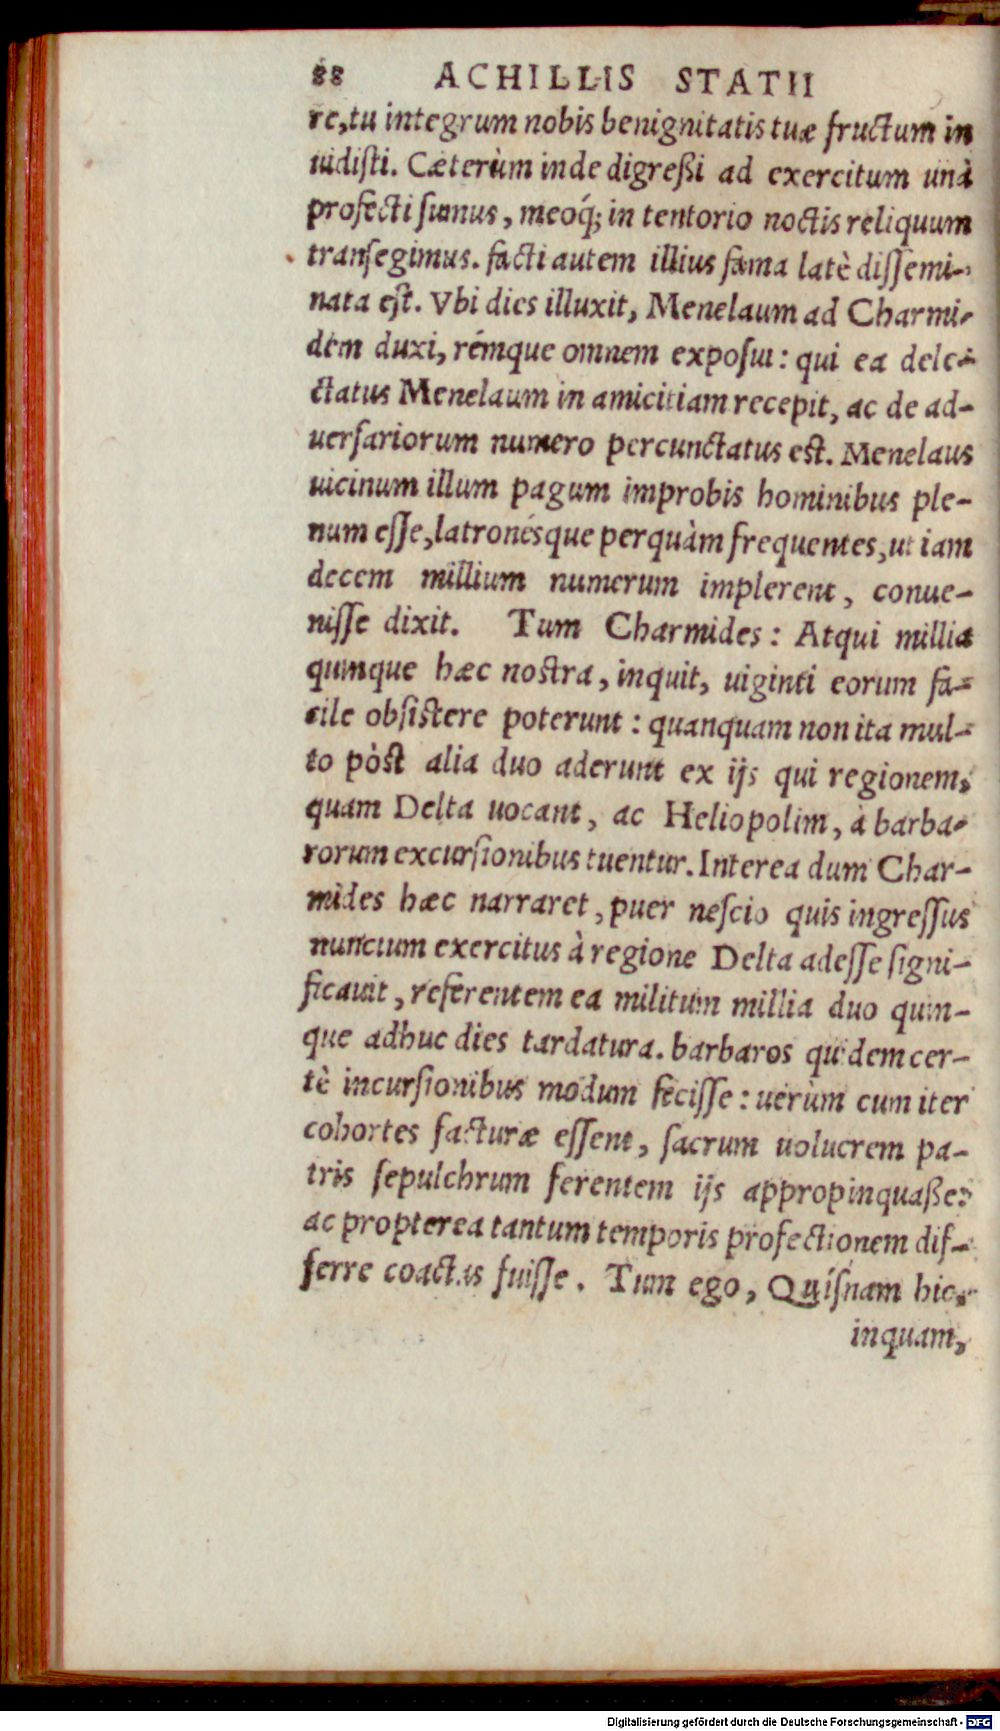 88 ACHILLIS STATII
re, tu integrum nobis benignitatis tuæ fructum in
uidisti. Cæterùm inde digreßi ad exercitum unà
profecti sumus, meoq́; in tentorio noctis reliquum
transegimus. facti autem illius fama latè dissemi-
nata est. Vbi dies illuxit, Menelaum ad Charmi-
dem duxi, rémque omnem exposui: qui ea dele-
ctatus Menelaum in amicitiam recepit, ac de ad-
uersariorum numero percunctatus est. Menelaus
uicinum illum pagum improbis hominibus ple-
num esse, latronésque perquàm frequentes, ut iam
decem millium numerum implerent, conue-
nisse dixit. Tum Charmides: Atqui millia
quinque hæc nostra, inquit, uiginti eorum fa-
cile obsistere poterunt: quanquam non ita mul-
to pòst alia duo aderunt ex ijs qui regionem,
quam Delta uocant, ac Heliopolim, à barba-
rorum excursionibus tuentur. Interea dum Char-
mides hæc narraret, puer nescio quis ingressus
nuncium exercitus à regione Delta adesse signi-
ficauit, referentem ea militum millia duo quin-
que adhuc dies tardatura. barbaros quidem cer-
tè incursionibus modum fecisse: uerùm cum iter
cohortes facturæ essent, sacrum uolucrem pa-
tris sepulchrum ferentem ijs appropinquaße:
ac propterea tantum temporis profectionem dif-
ferre coactas fuisse. Tum ego, Quísnam hic,
inquam,
Digitalisierung gefördert durch die Deutsche Forschungsgemeinschaft - DFG